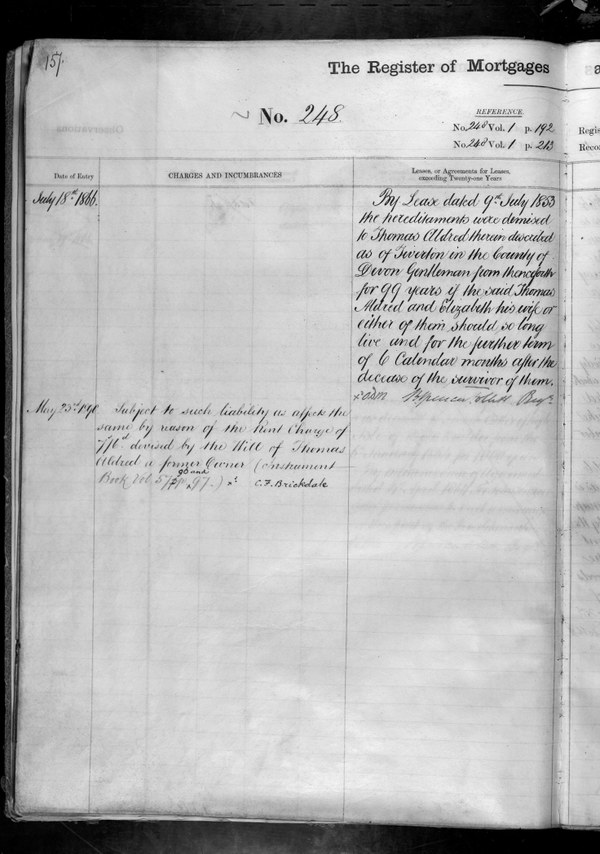 157.
The Register of Mortgages
No. 248.
REFERENCE.
No. 248 Vol. 1 p. 192
No. 248 Vol. 1 p. 213
Regis
Reco
Observations
Date of Entry
CHARGES AND INCUMBRANCES
Leases, or Agreements for Leases,
exceeding Twenty-one Years
July 18th 1866.
By Lease dated 9th July 1853
the hereditaments were demised
to Thomas Aldred therein described
as of Tiverton in the County of
Devon Gentleman from thenceforth
for 99 years if the said Thomas
Aldred and Elizabeth his wife or
either of them should so long
live and for the further term
of 6 Calendar months after the
decease of the survivor of them.
May 23rd 1898
Subject to such liability as affects the
same by reason of the Rent Charge of
devised by the Will of Thomas
Aldred a former Owner (Instrument
Book Vol. 57 pp. 96 and 97.)
C.F. Brickdale